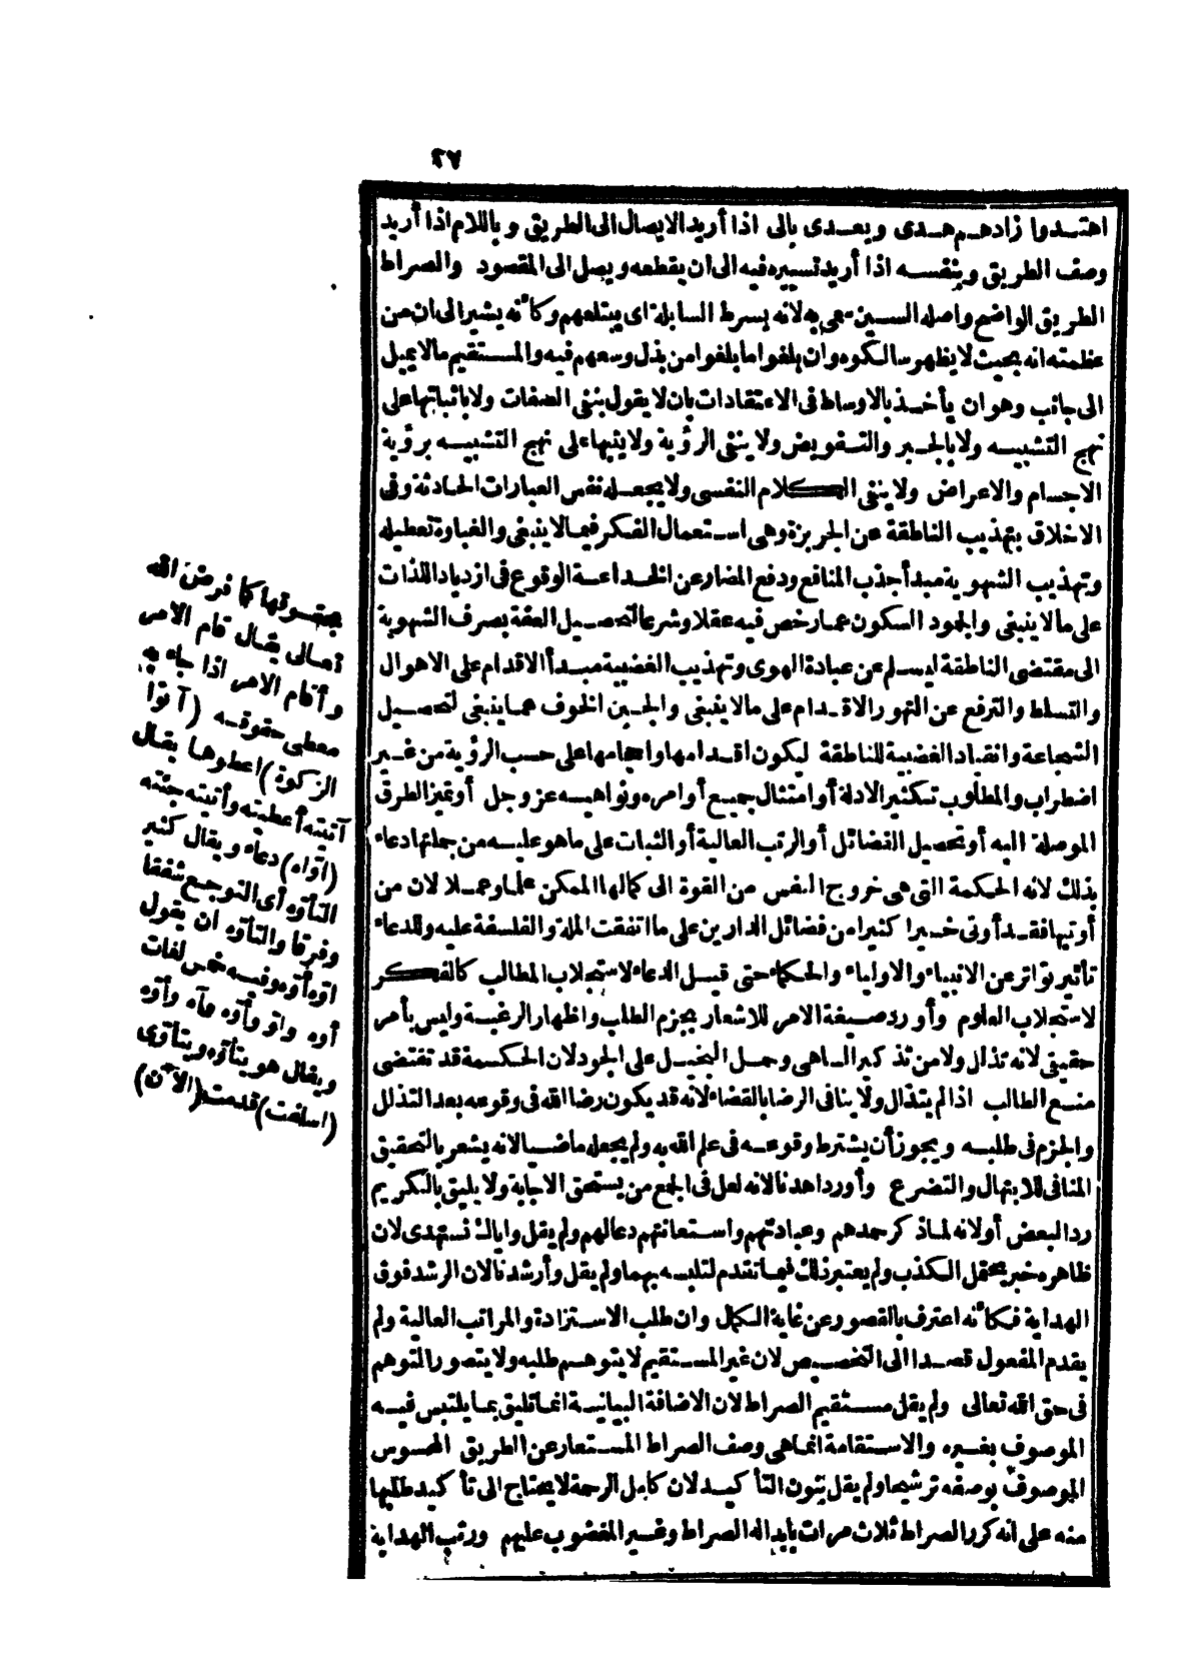 ٢٧
اهتدوا زادهم هدى ويعدى بالى اذا أريد الايصال الى الطريق وباللام اذا أريد
وصف الطريق وبنفسه اذا أريد تسييره فيه الى ان يقطعه ويصل الى المقصود والصراط
الطريق الواضح واصله السين سمى به لانه يسرط السابلة اى يبتلعهم وكأنه يشير الى ان من
عظمته انه بحيث لا يظهر سالكوه وان بلغوا ما بلغوا من بذل وسعهم فيه والمستقيم مالا يميل
الى جانب وهو ان يأخذ بالاوساط فى الاعتقادات بان لا يقول بنفى الصفات ولا باثباتها على
نهج التشبيه ولا بالجبر والتفويض ولا ينفى الرؤية ولا يثبها على نهج التشبيه برؤية
الاجسام والاعراض ولا ينفى الكلام النفسى ولا يجعله نفس العبارات الحادثة وفى
الاخلاق بتهذيب الناطقة عن الجربزة وهى استعمال الفكر فيما لا ينبغى والغباوة تعطيله
وتهذيب الشهوية مبدأ جذب المنافع ودفع المضار عن الخداعة الوقوع فى ازدياد اللذات
على مالا ينبغى والجمود السكون عما رخص فيه عقلا وشرعا لتحصيل العفة بصرف الشهوية
الى مقتضى الناطقة ليسلم عن عبادة الهوى وتهذيب الغضبية مبدأ الاقدام على الاهوال
والتسلط والترفع عن التهور الاقدام على مالا ينبغى والجبن الخوف عما ينبغى لتحصيل
الشجاعة وانقياد الغضبية للناطقة ليكون اقدامها واحجامها على حسب الرؤية من غير
اضطراب والمطلوب تكثير الادلة أو امتثال جميع أوامره ونواهيه عز وجل أو تميز الطرق
الموصلة اليه أو تحصيل الفضائل أو الرتب العالية أو الثبات على ما هو عليه من جملتها دعاء
بذلك لانه الحكمة التى هى خروج النفس من القوة الى كمالها الممكن علما وعملا لان من
أوتيها فقد أوتى خيرا كثيرا من فضائل الدارين على ما اتفقت الملة والفلسفة عليه وللدعاء
تأثير تواتر عن الانبياء والاولياء والحكماء حتى قيل الدعاء لاستجلاب المطالب كالفكر
لاستجلاب العلوم وأورد صيغة الامر للاشعار بجزم الطلب واظهار الرغبة وليس بأمر
حقيقى لانه تذلل ولا من تذكير الساهى وحمل البخيل على الجود لان الحكمة قد تقتضى
منع الطالب اذا لم يتذلل ولا ينافى الرضا بالقضاء لانه قد يكون رضا الله فى وقوعه بعد التذلل
والجزم فى طلبه ويجوز أن يشترط وقوعه فى علم الله به ولم يجعله ماضيا لانه يشعر بالتحقيق
المنافى للابتهال والتضرع وأورد اهدنا لانه لعل فى الجمع من يستحق الاجابة ولا يليق بالكريم
رد البعض أو لانه لما ذكر حمدهم وعبادتهم واستعانتهم دعا لهم ولم يقل واياك نستهدى لان
ظاهره خبر يحتمل الكذب ولم يعتبر ذلك فيما تقدم لتلبسه بهما ولم يقل وأرشدنا لان الرشد فوق
الهداية فكأنه اعترف بالقصور عن غاية الكمال وان طلب الاستزادة والمراتب العالية ولم
يقدم المفعول قصدا الى التخصيص لان غير المستقيم لا يتوهم طلبه ولا يتصور التوهم
فى حق الله تعالى ولم يقل مستقيم الصراط لان الاضافة البيانية انما تليق بما يلتبس فيه
الموصوف بغيره والاستقامة انما هى وصف الصراط المستعار عن الطريق المحسوس
الموصوف بوصفه ترشيحا ولم يقل بنون التأكيد لان كامل الرحمة لا يحتاج الى تأكيد طلبها
منه على انه كرر الصراط ثلاث مرات بابداله الصراط وغير المغضوب عليهم ورتب الهداية
بحقوقها كما فرض الله
تعالى يقال قام الامر
وأقام الامر اذا جاء به
معطى حقوقه (آتوا
الزكوة) اعطوها يقال
آتيته أعطيته وأتيته جئته
(اوّاه) دعاء ويقال كثير
التأوّه أى التوجع شفقا
وفرقا والتأوّه ان يقول
اوّه أوّه وفيه خمس لغات
أوه واو وأوّه وآه وأوّه
ويقال هو يتأوّه ويتأوّى
(اسلفت) قدمت (الآن)